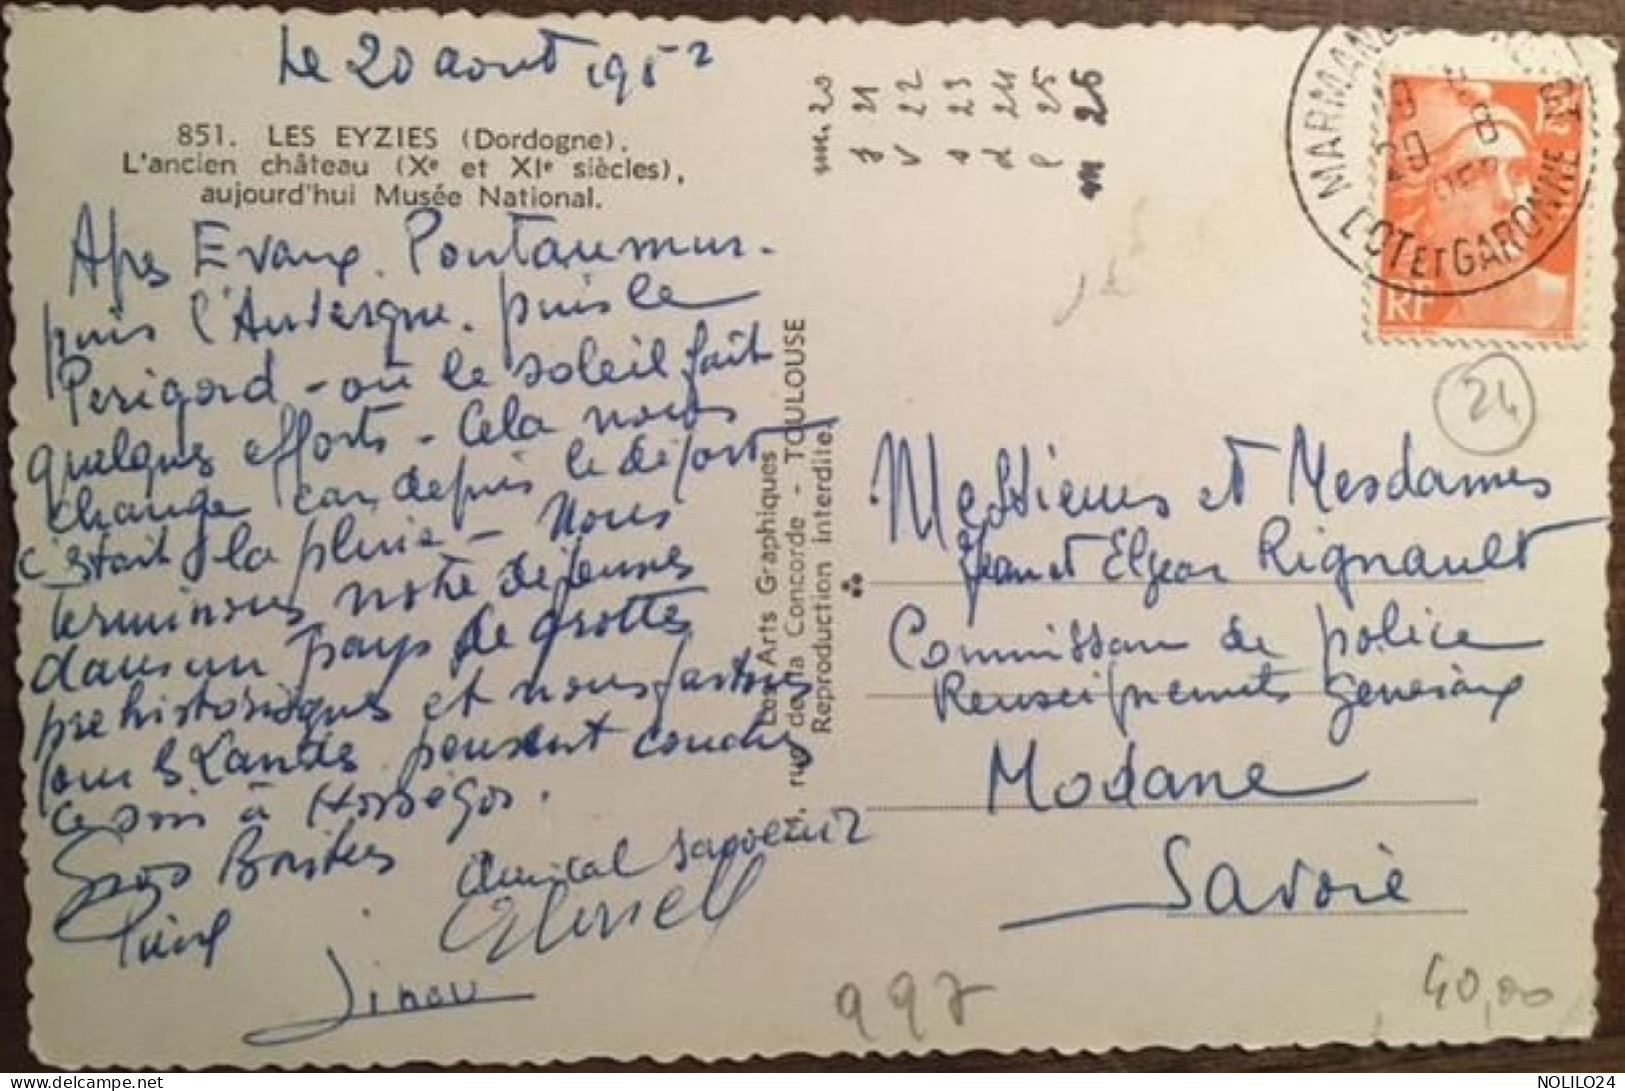 Le 20 aout 1952
851. LES EYZIES (Dordogne).
L'ancien château (Xe et XIe siècles),
aujourd'hui Musée National.
Apres Evaux. Pontaumur.
puis l'Auvergne. puis le
Perigord - où le soleil fait
quelques efforts - Cela nous
change car depuis le départ
c'était la pluie - Nous
terminons notre dejeuner
dans un pays de grottes
prehistoriques et nous partons
pour les Landes pensant coucher
ce soir à Hossegor.
Gros Baisers
Amical souvenir
Ginou
Les Arts Graphiques
rue de la Concorde - TOULOUSE
Reproduction interdite.
me. 20
j 21
v 22
s 23
d 24
l 25
m 26
MARMANDE
LOT ET GARONNE
RF
24
Messieurs et Mesdames
Jean et Elgear Rignault
Commissaire de police
Renseignements Generaux
Modane
Savoie
997
40,00
NOLILO24